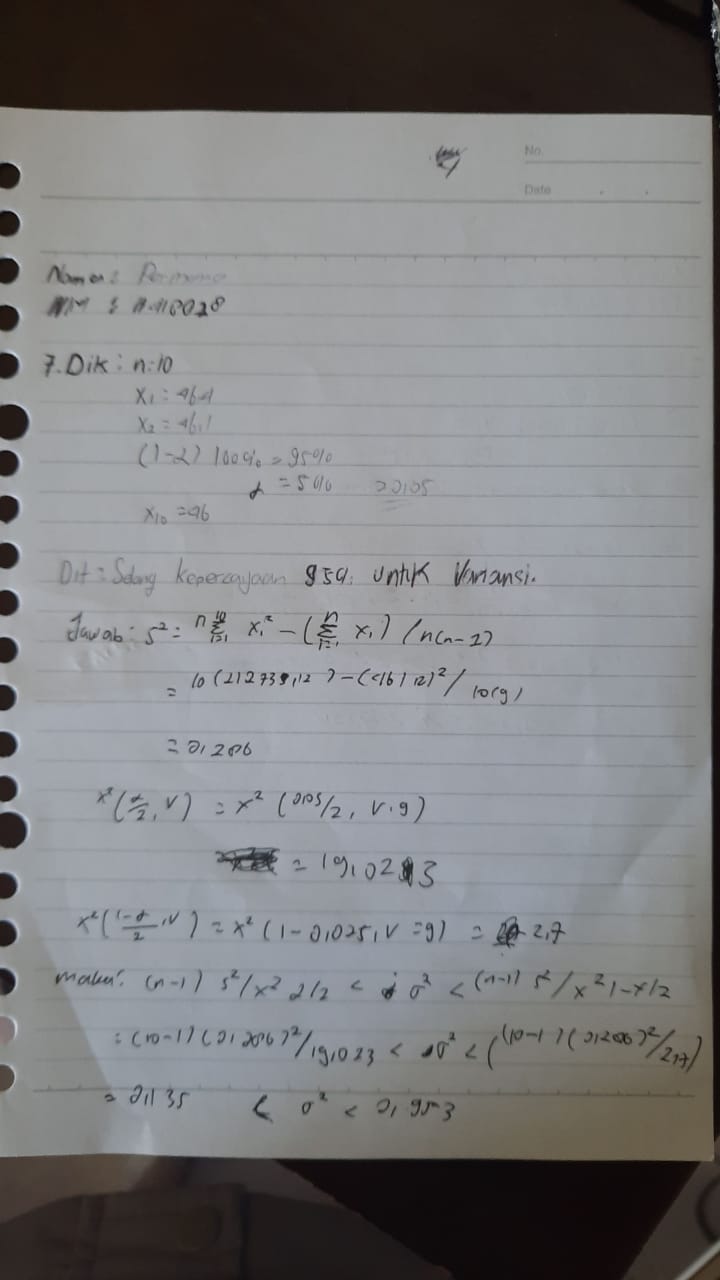 No.
Date
Nama :
NIM :
7. Dik : n = 10
X₁ = 46,4
X₂ = 46,1
(1-α) 100% = 95%
α = 5% = 0,05
X₁₀ = 46
Dit : Selang kepercayaan 95%. untuk Variansi.
Jawab : s² = n Σ xᵢ² - (Σ xᵢ) / n(n-1)
= 10 (21273,12) - (461,2)² / 10(9)
= 0,286
x² (α/2, V) = x² (0,05/2, V.9)
= 19,023
x² (1-α/2, V) = x² (1-0,025, V = 9) = 2,7
maka : (n-1) s²/x² α/2 < σ² < (n-1) s²/x² 1-α/2
= (10-1) (0,286)²/19,023 < σ² < ((10-1) (0,286)²/2,7)
= 0,135 < σ² < 0,953